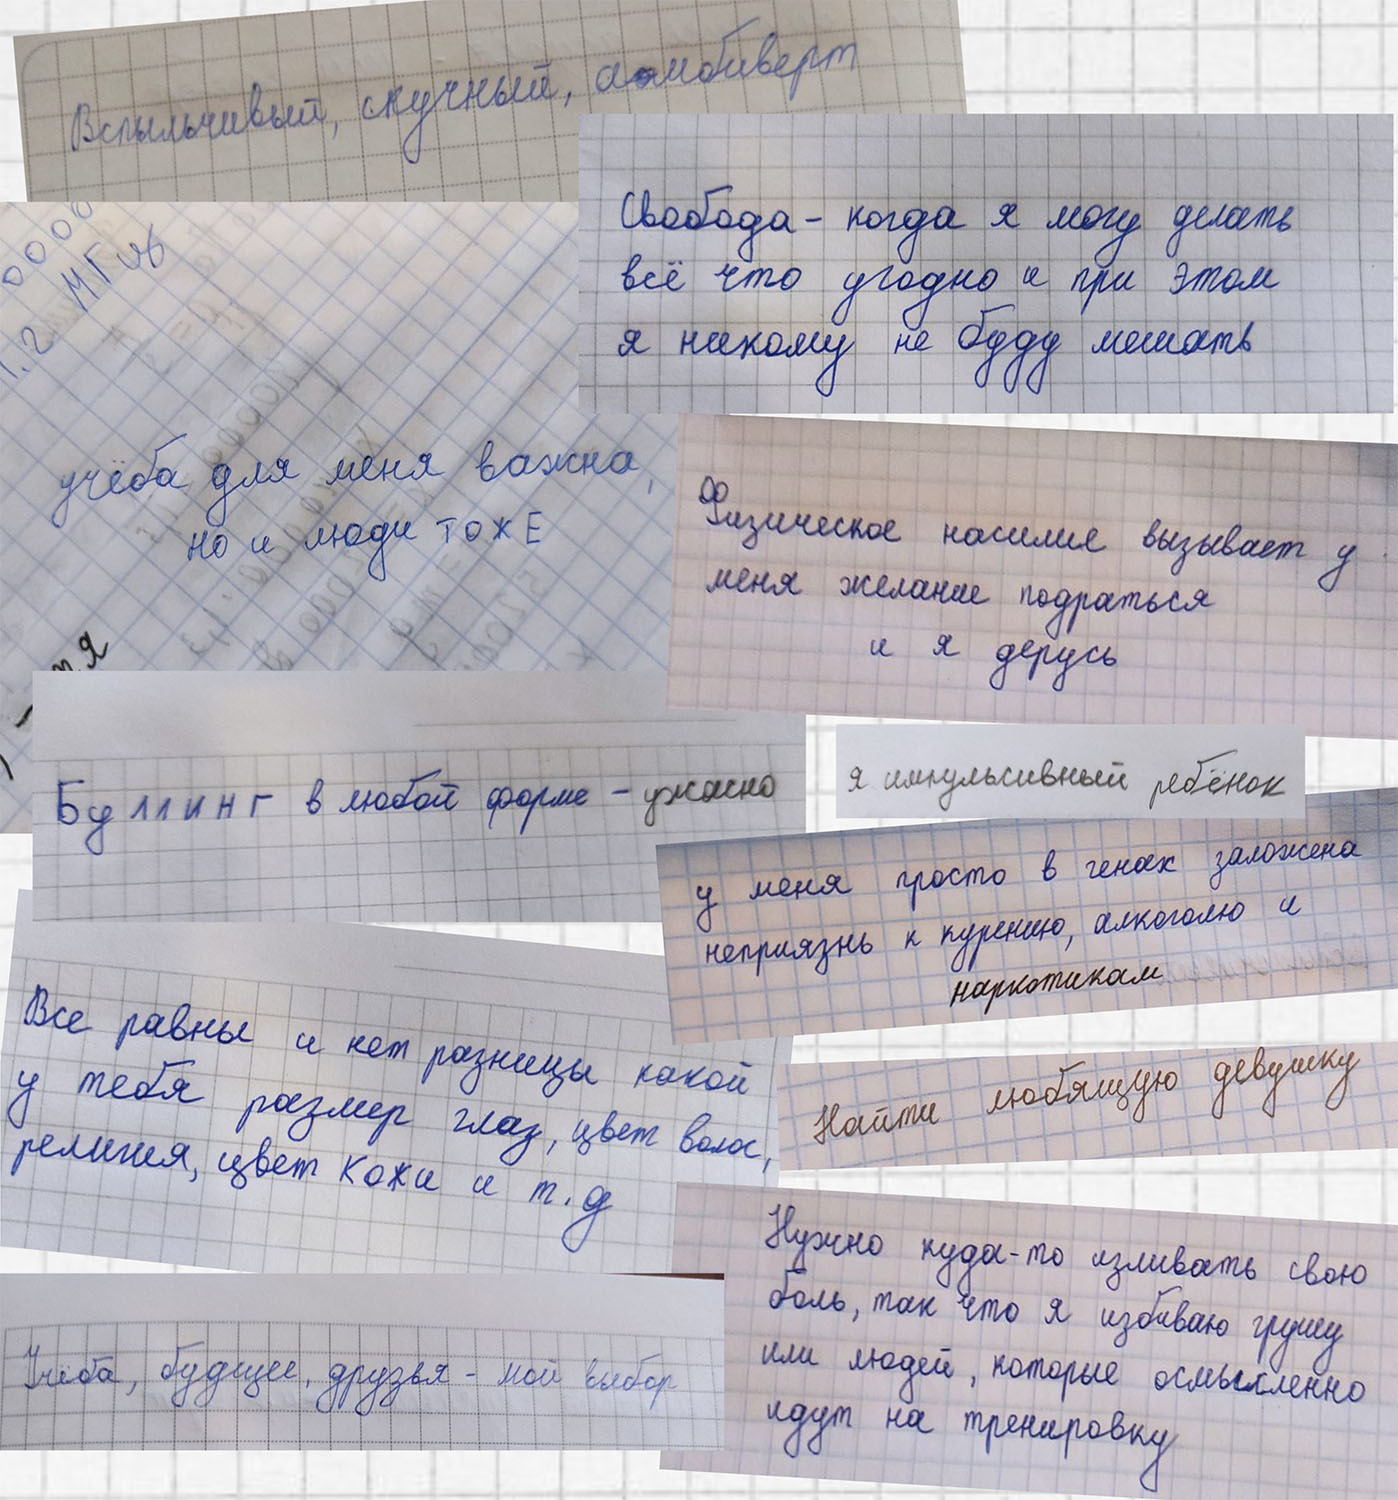 Вспыльчивый, скучный, амбиверт
Свобода - когда я могу делать
всё что угодно и при этом
я никому не буду мешать
1.2 МГц
учёба для меня важна,
но и люди тоже
Физическое насилие вызывает у
меня желание подраться
и я дерусь
Буллинг в любой форме - ужасно
я импульсивный ребёнок
у меня просто в генах заложена
неприязнь к курению, алкоголю и
наркотикам
Все равны и нет разницы какой
у тебя размер глаз, цвет волос,
религия, цвет кожи и т.д
Найти любящую девушку
Нужно куда-то изливать свою
боль, так что я избиваю грушу
или людей, которые осмысленно
идут на тренировку
Учёба, будущее, друзья - мой выбор